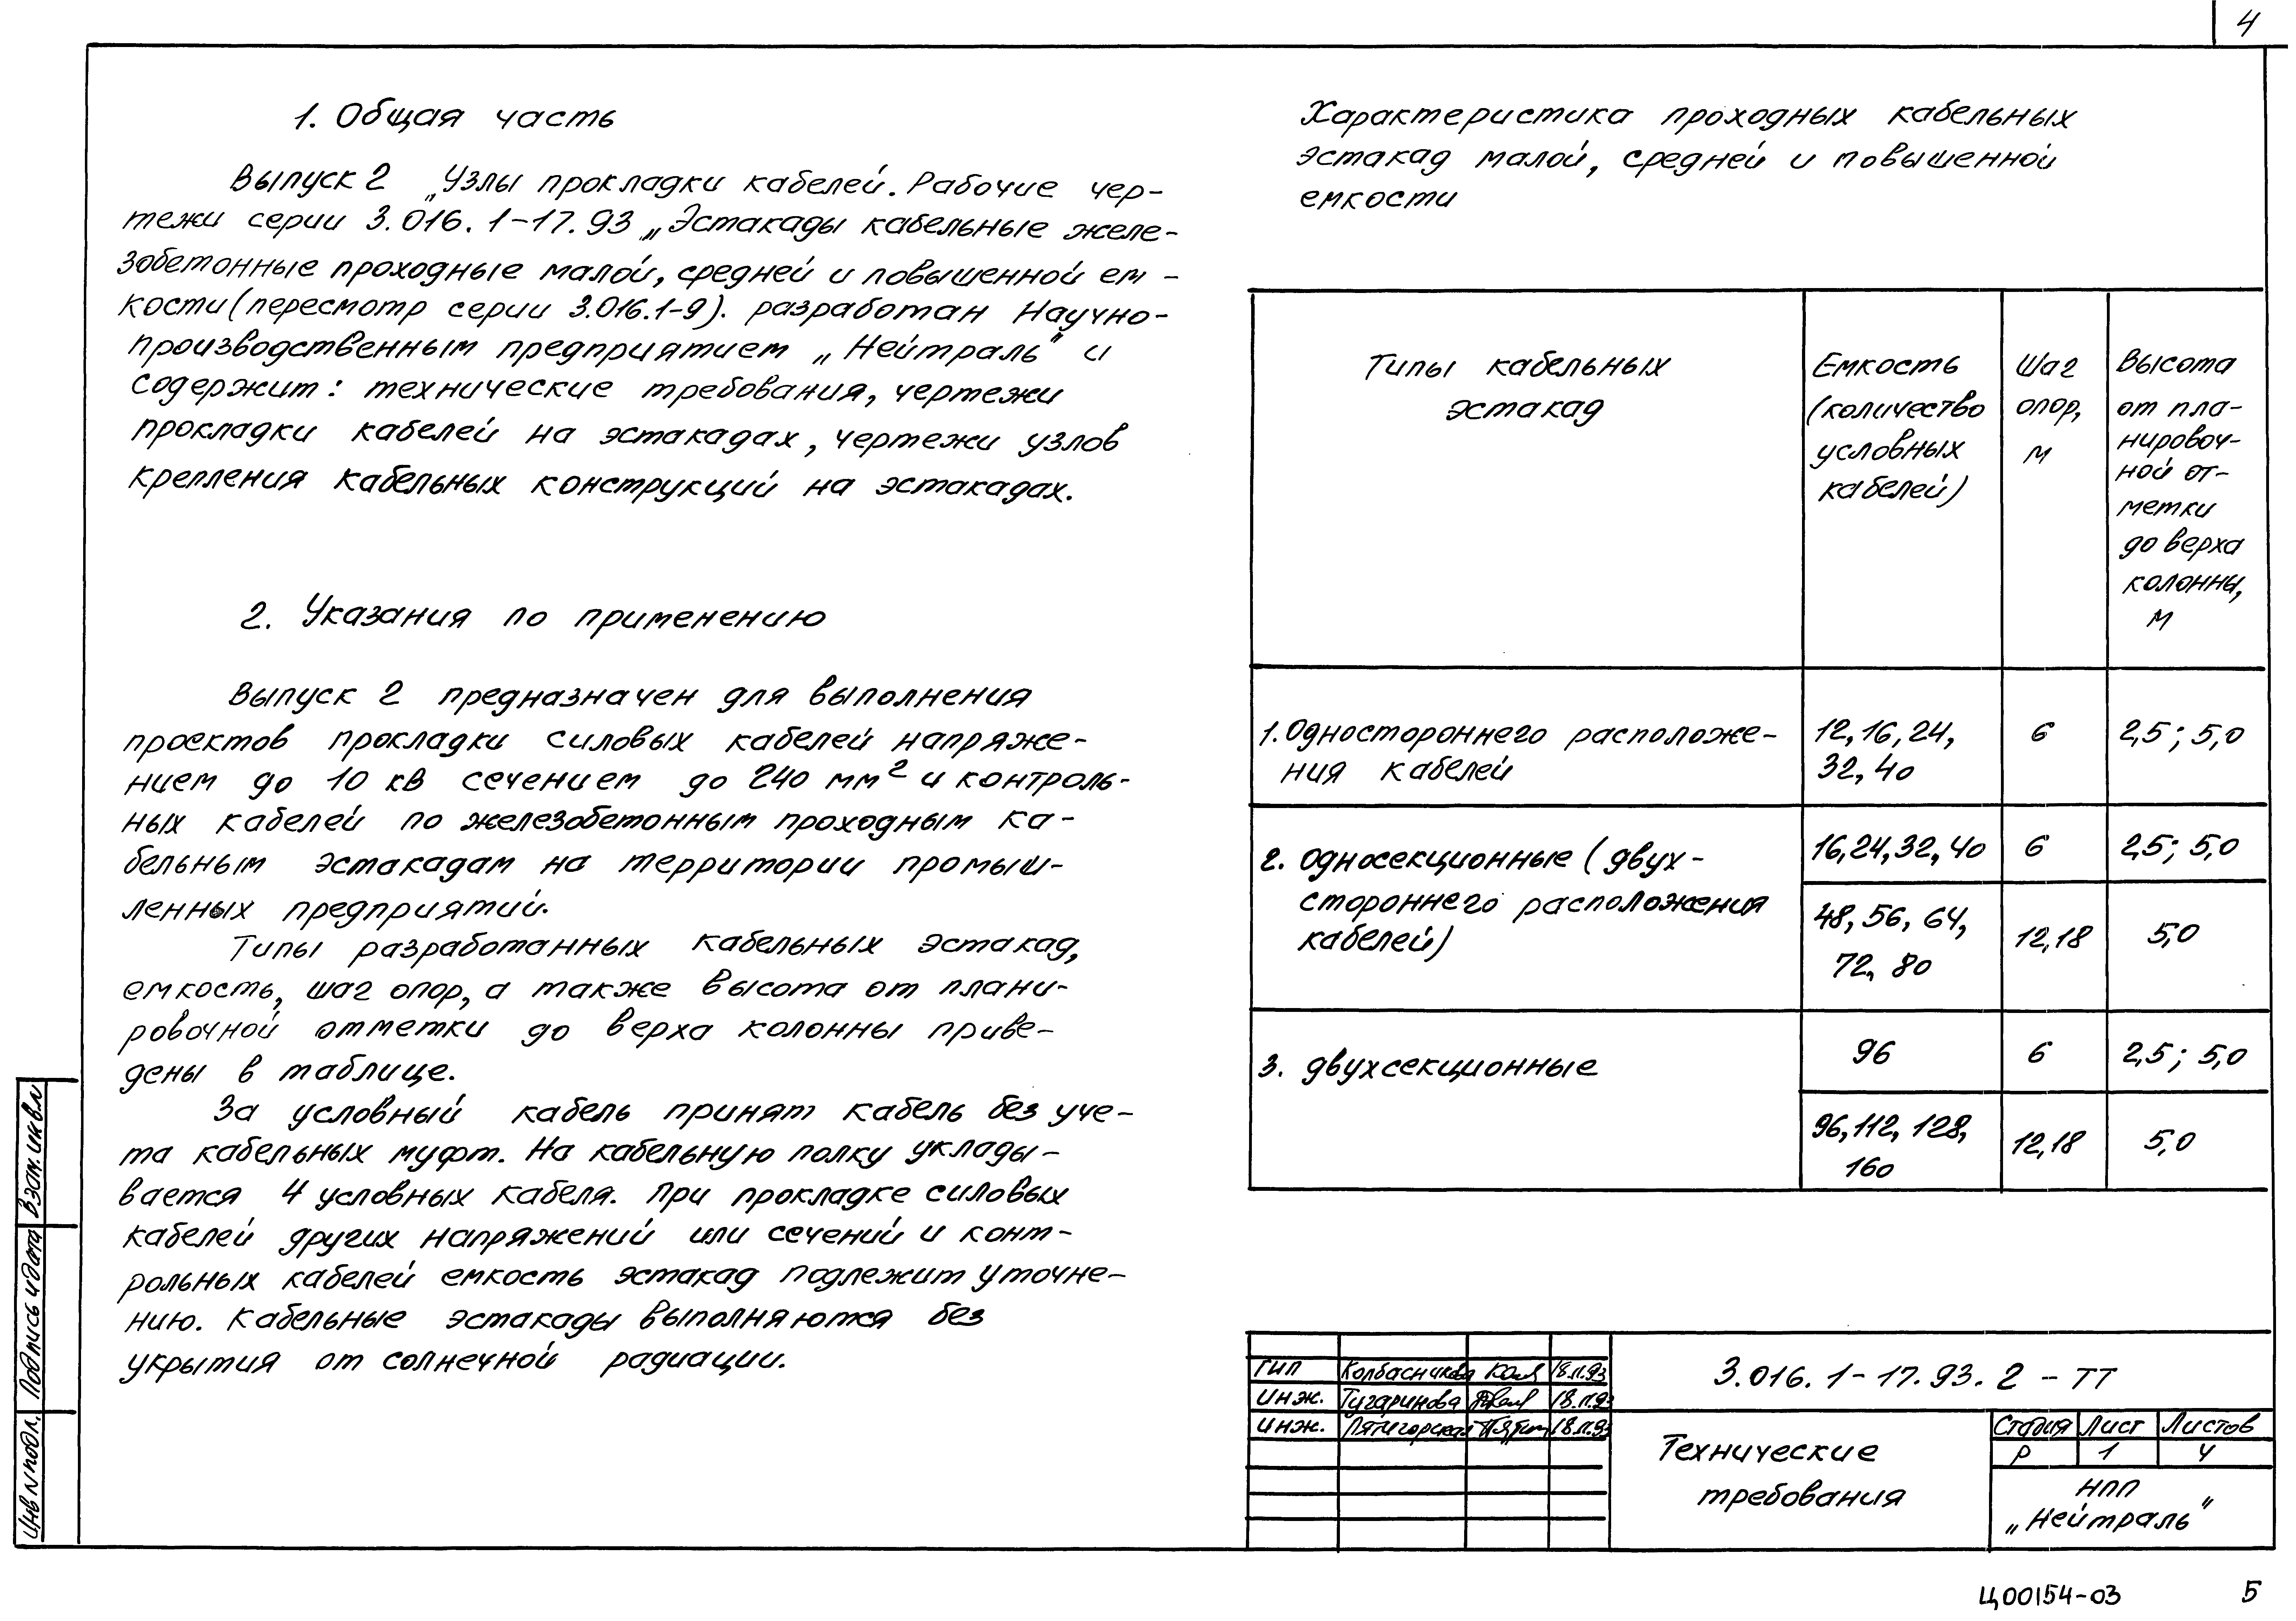 4
1. Общая часть
Выпуск 2 „Узлы прокладки кабелей. Рабочие чер-
тежи серии 3.016.1-17.93 „Эстакады кабельные желе-
зобетонные проходные малой, средней и повышенной ем-
кости (пересмотр серии 3.016.1-9). разработан Научно-
производственным предприятием „Нейтраль" и
содержит: технические требования, чертежи
прокладки кабелей на эстакадах, чертежи узлов
крепления кабельных конструкций на эстакадах.
2. Указания по применению
Выпуск 2 предназначен для выполнения
проектов прокладки силовых кабелей напряже-
нием до 10 кв сечением до 240 мм² и контроль-
ных кабелей по железобетонным проходным ка-
бельным эстакадам на территории промыш-
ленных предприятий.
Типы разработанных кабельных эстакад,
емкость, шаг опор, а также высота от плани-
ровочной отметки до верха колонны приве-
дены в таблице.
За условный кабель принят кабель без уче-
та кабельных муфт. На кабельную полку уклады-
вается 4 условных кабеля. При прокладке силовых
кабелей других напряжений или сечений и конт-
рольных кабелей емкость эстакад подлежит уточне-
нию. Кабельные эстакады выполняются без
укрытия от солнечной радиации.
Характеристика проходных кабельных
эстакад малой, средней и повышенной
емкости
Типы кабельных
эстакад
Емкость
(количество
условных
кабелей)
Шаг
опор,
м
Высота
от пла-
нировоч-
ной от-
метки
до верха
колонны,
м
1. Одностороннего расположе-
ния кабелей
12, 16, 24,
32, 40
6
2,5; 5,0
2. Односекционные (двух-
стороннего расположения
кабелей)
16, 24, 32, 40
6
2,5; 5,0
48, 56, 64,
72, 80
12, 18
5,0
3. двухсекционные
96
6
2,5; 5,0
96, 112, 128,
160
12, 18
5,0
ГИП Колбасникова 18.11.93
Инж. Тугаринова 18.11.93
Инж. Пятигорская 18.11.93
3.016.1-17.93.2-ТТ
Технические
требования
Стадия Лист Листов
Р 1 4
НПП
„Нейтраль"
Инв N подл. Подпись и дата Взам. инв N
Ц00154-03 5